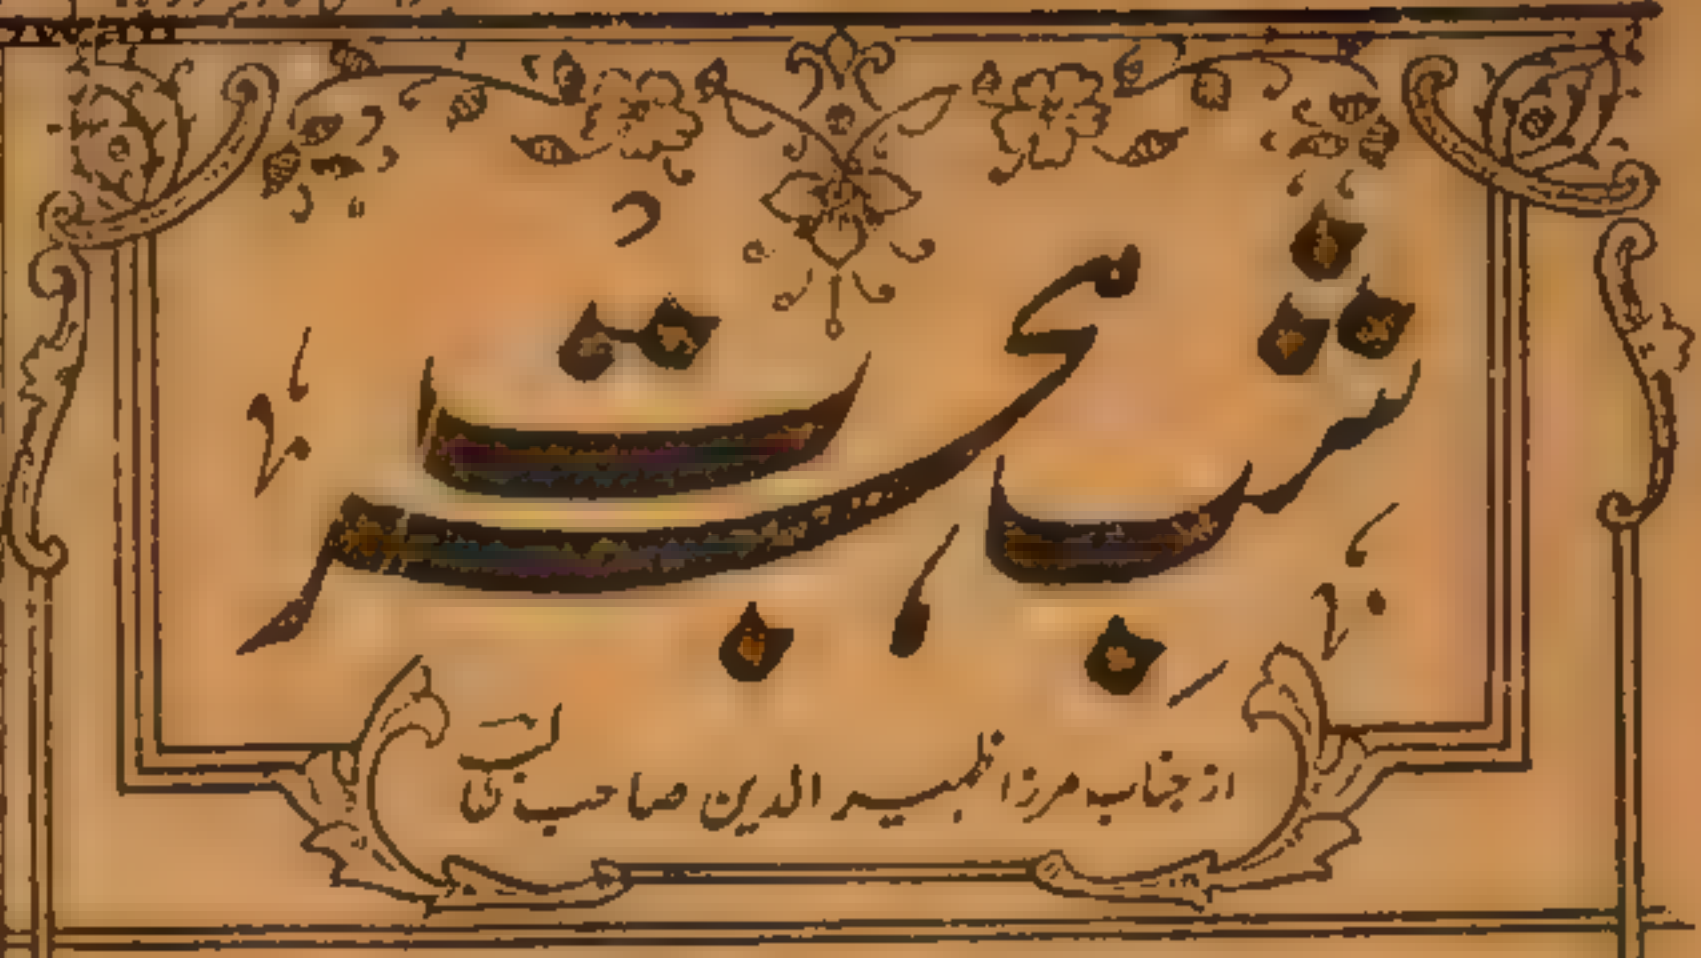 شبِ ہجرت
از جناب مرزا ظہیر الدین صاحب